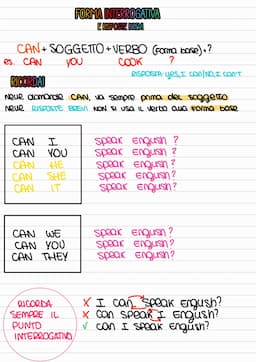 FORMA INTERROGATIVA
E RISPOSTE BREVI
CAN + SOGGETTO + VERBO (forma base) + ?
es. CAN YOU COOK ?
RISPOSTA yes, I can/No, I can't
RICORDA!
NELLE DOMANDE CAN, va sempre prima del soggetto
NELLE RISPOSTE BREVI NON SI USA IL VERBO ALLA FORMA BASE
CAN I SPEAK ENGLISH ?
CAN YOU SPEAK ENGLISH ?
CAN HE SPEAK ENGLISH ?
CAN SHE SPEAK ENGLISH ?
CAN IT SPEAK ENGLISH ?
CAN WE SPEAK ENGLISH ?
CAN YOU SPEAK ENGLISH ?
CAN THEY SPEAK ENGLISH ?
RICORDA
SEMPRE IL
PUNTO
INTERROGATIVO
X I can speak english?
X can speak I english?
✓ can I speak english?